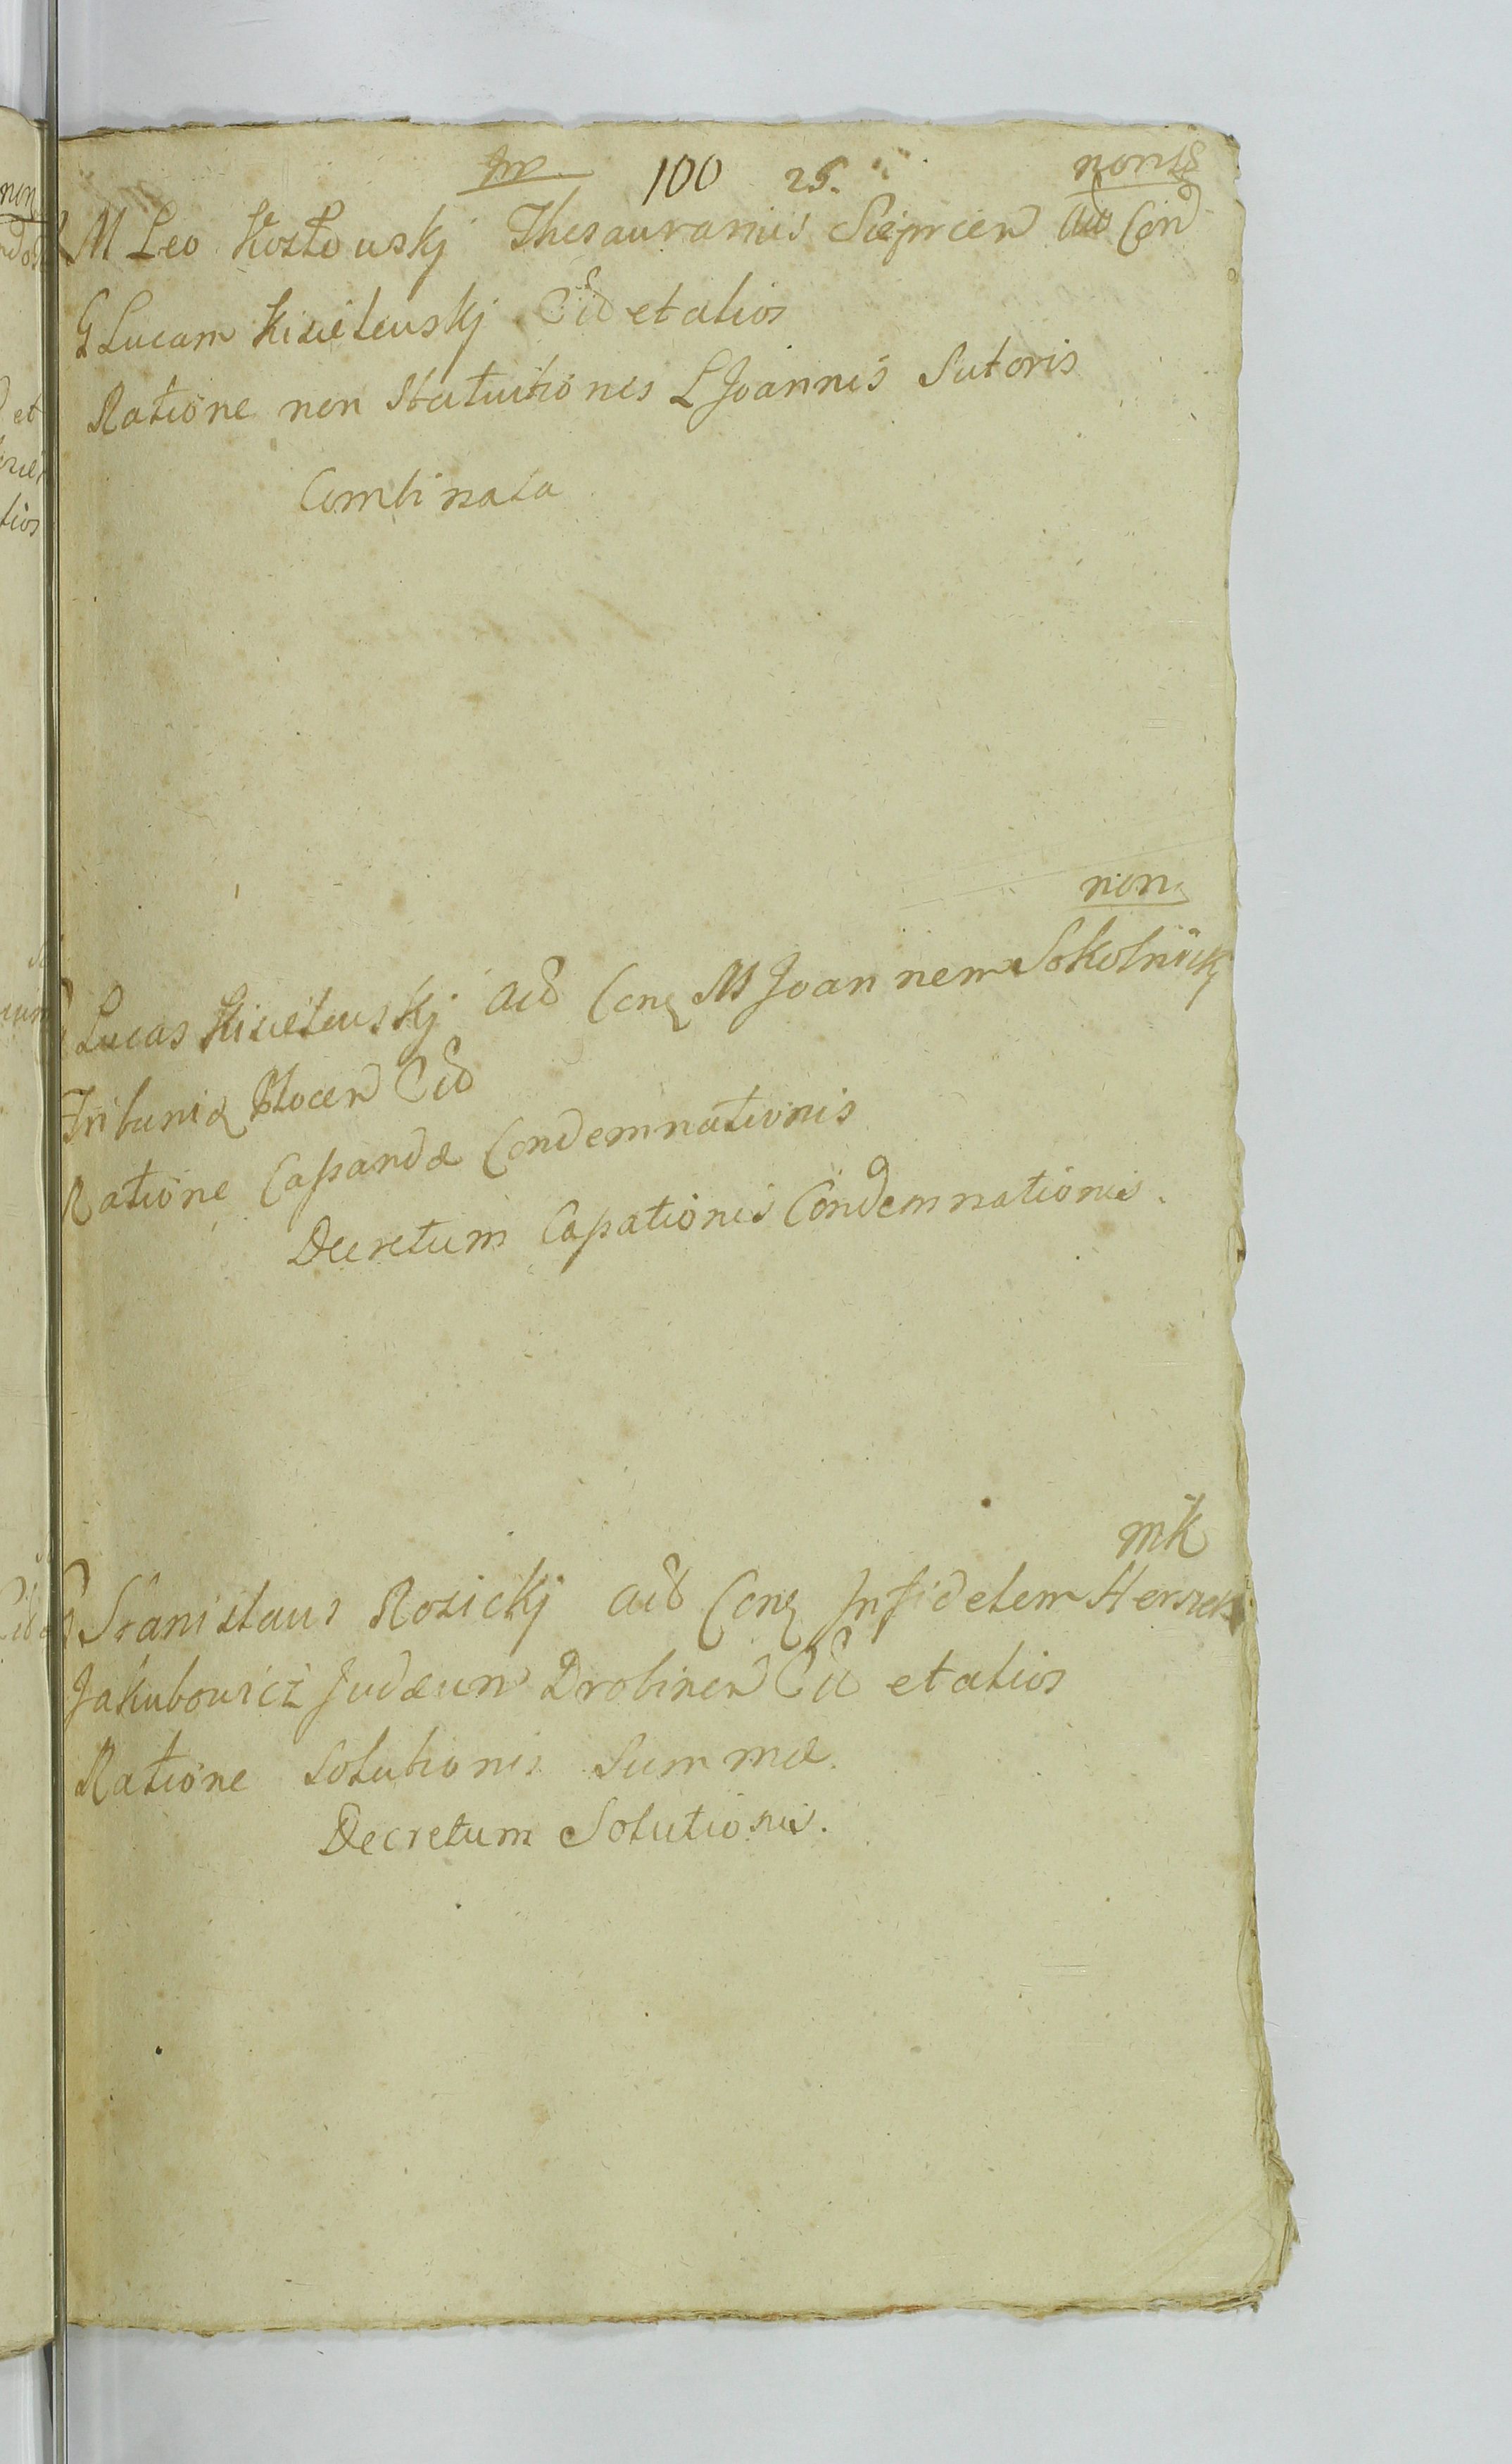 100 25.
M Leo Kozłowskj Thesaurarius Sieprcen Aīd Con
G Lucam Kisielewskj Cīd et alios
Ratione non Statuitionis L Joannis Sutoris
Combinata
non
Lucas Kisielewskj Aīd Con M Joannem Sokolnickj
Tribunū Plocen Cīd
Ratione Cassandæ Condemnationis
Decretum Cassationis Condemnationis.
mk
G Stanislaus Rosickj Aīd Con Infidelem Herszek
Jakubowicz Judæum Drobinen Cīd et alios
Ratione Solutionis Summæ.
Decretum Solutionis.